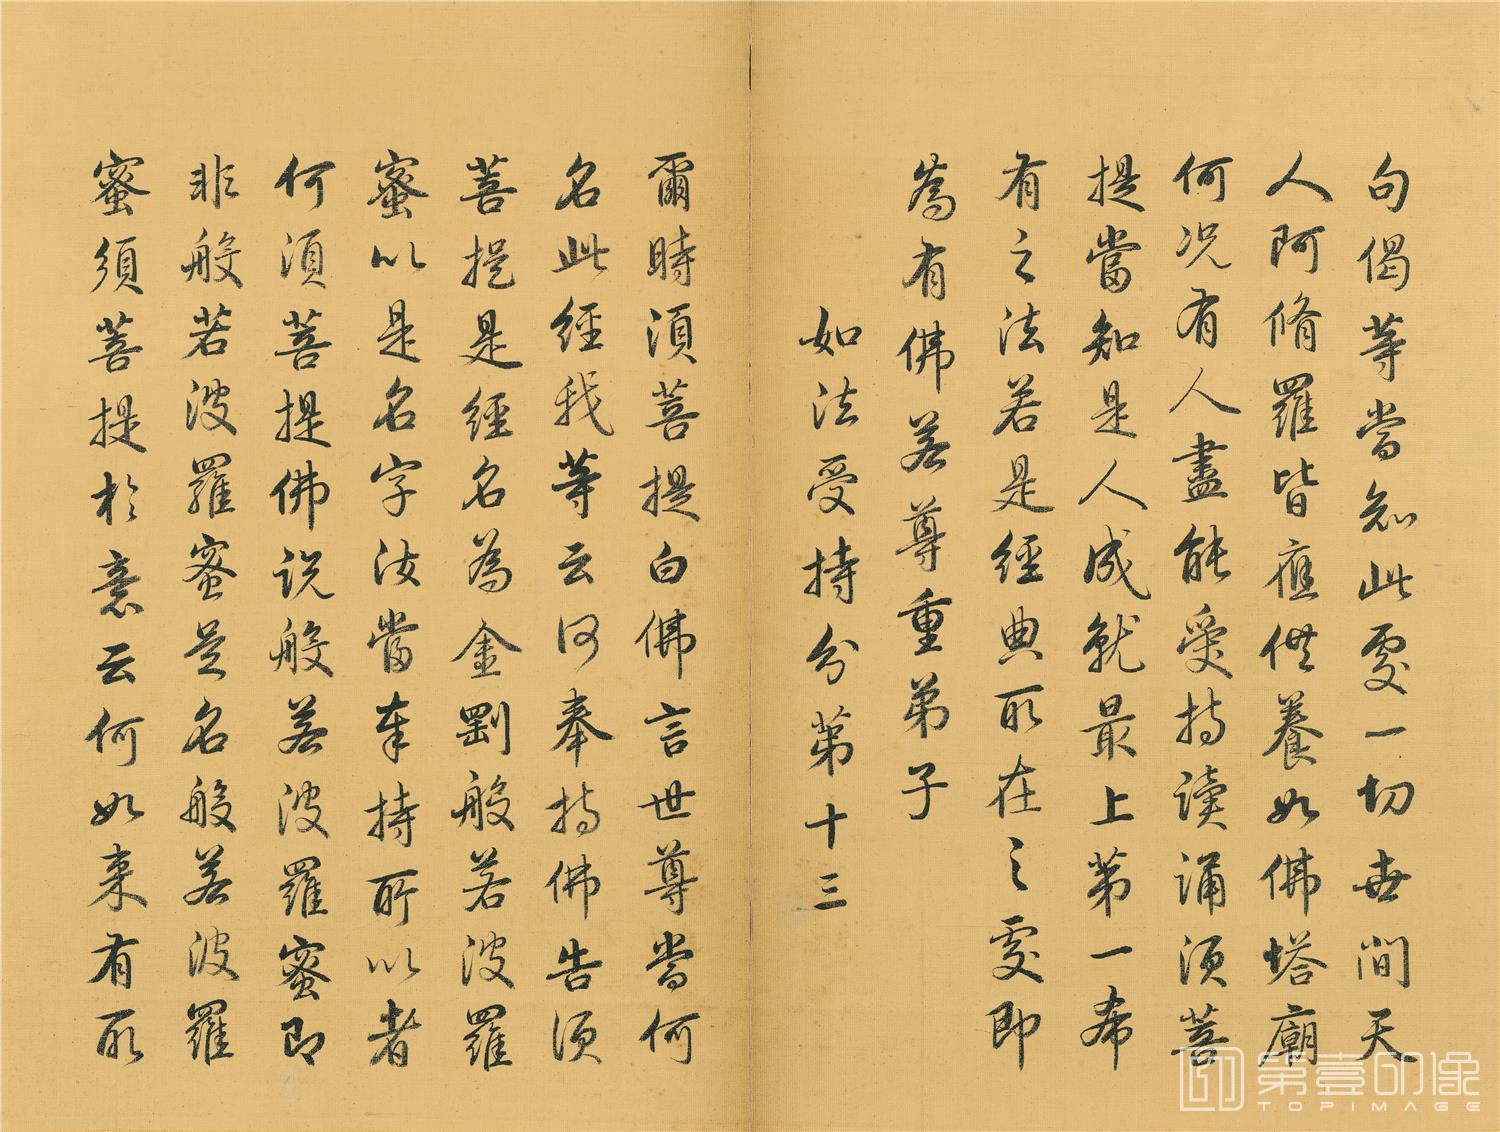 句偈等當知此處一切世間天
人阿脩羅皆應供養如佛塔廟
何況有人盡能受持讀誦須菩
提當知是人成就最上第一希
有之法若是經典所在之處即
為有佛若尊重弟子
如法受持分第十三
爾時須菩提白佛言世尊當何
名此經我等云何奉持佛告須
菩提是經名為金剛般若波羅
蜜以是名字汝當奉持所以者
何須菩提佛說般若波羅蜜即
非般若波羅蜜是名般若波羅
蜜須菩提於意云何如來有所
第壹印像
TOPIMAGE